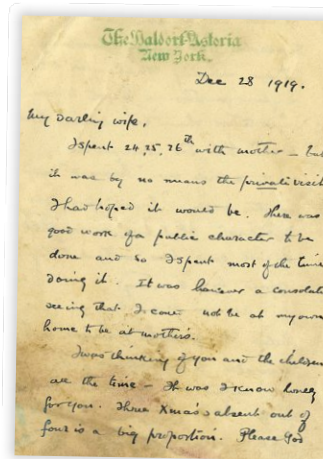 The Waldorf-Astoria
New York.
Dec 28 1919.
My Darling wife,
I spent 24, 25, 26th with mother – but
it was by no means the private visit
I had hoped it would be. There was
good work of a public character to be
done and so I spent most of the time
doing it. It was however a consolation
seeing that I could not be at my own
home to be at mother's.
I was thinking of you and the children
all the time – It was I know lonely
for you. Three Xmas's absent out of
four is a big proportion. Please God